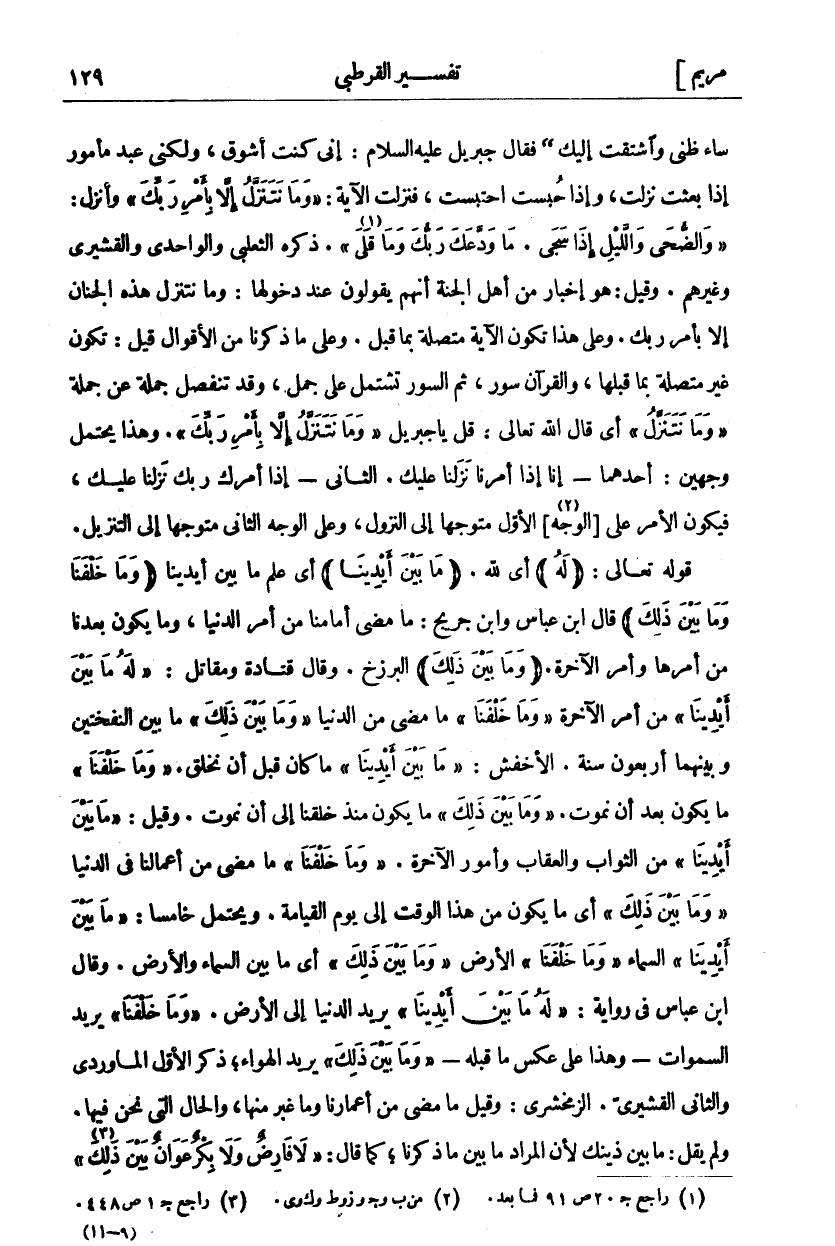 مريم] تفسير القرطبي ١٢٩
ساء ظنى وآشتقت إليك" فقال جبريل عليه السلام : إنى كنت أشوق ، ولكنى عبد مأمور
إذا بعثت نزلت، وإذا حُبست احتبست ، فنزلت الآية : «وَمَا نَتَنَزَّلُ إِلَّا بِأَمْرِ رَبِّكَ» وأنزل :
« وَالضُّحَى وَاللَّيْلِ إِذَا سَجَى . مَا وَدَّعَكَ رَبُّكَ وَمَا قَلَى (١) » . ذكره الثعلبي والواحدى والقشيرى
وغيرهم . وقيل : هو إخبار من أهل الجنة أنهم يقولون عند دخولها : وما نتنزل هذه الجنان
إلا بأمر ربك . وعلى هذا تكون الآية متصلة بما قبل . وعلى ما ذكرنا من الأقوال قيل : تكون
غير متصلة بما قبلها ، والقرآن سور ، ثم السور تشتمل على جمل ، وقد تنفصل جملة عن جملة
« وَمَا نَتَنَزَّلُ » أى قال الله تعالى : قل يا جبريل « وَمَا نَتَنَزَّلُ إِلَّا بِأَمْرِ رَبِّكَ ». وهذا يحتمل
وجهين : أحدهما — إنا إذا أمرنا نَزَلنا عليك . الثانى — إذا أمرك ربك نَزلنا عليك ،
فيكون الأمر على [الوجه] (٢) الأوّل متوجها إلى النزول، وعلى الوجه الثانى متوجها إلى التنزيل .
قوله تعالى : ﴿لَهُ﴾ أى لله . ﴿مَا بَيْنَ أَيْدِينَا﴾ أى علم ما بين أيدينا ﴿وَمَا خَلْفَنَا
وَمَا بَيْنَ ذَلِكَ﴾ قال ابن عباس وابن جريج : ما مضى أمامنا من أمر الدنيا ، وما يكون بعدنا
من أمرها وأمر الآخرة. ﴿وَمَا بَيْنَ ذَلِكَ﴾ البرزخ . وقال قتادة ومقاتل : « لَهُ مَا بَيْنَ
أَيْدِينَا » من أمر الآخرة « وَمَا خَلْفَنَا » ما مضى من الدنيا « وَمَا بَيْنَ ذَلِكَ » ما بين النفختين
وبينهما أربعون سنة . الأخفش : « مَا بَيْنَ أَيْدِينَا » ما كان قبل أن نخلق . « وَمَا خَلْفَنَا »
ما يكون بعد أن نموت. « وَمَا بَيْنَ ذَلِكَ » ما يكون منذ خلقنا إلى أن نموت . وقيل : «مَا بَيْنَ
أَيْدِينَا » من الثواب والعقاب وأمور الآخرة . « وَمَا خَلْفَنَا » ما مضى من أعمالنا فى الدنيا
« وَمَا بَيْنَ ذَلِكَ » أى ما يكون من هذا الوقت إلى يوم القيامة . ويحتمل خامسا : « مَا بَيْنَ
أَيْدِينَا » السماء « وَمَا خَلْفَنَا » الأرض « وَمَا بَيْنَ ذَلِكَ » أى ما بين السماء والأرض . وقال
ابن عباس فى رواية : « لَهُ مَا بَيْنَ أَيْدِينَا » يريد الدنيا إلى الأرض . «وَمَا خَلْفَنَا» يريد
السموات — وهذا على عكس ما قبله — « وَمَا بَيْنَ ذَلِكَ» يريد الهواء؛ ذكر الأوّل الماوردى
والثانى القشيرىّ . الزمخشرى : وقيل ما مضى من أعمارنا وما غبر منها، والحال التى نحن فيها .
ولم يقل : ما بين ذينك لأن المراد ما بين ما ذكرنا ؛ كما قال : « لَا فَارِضٌ وَلَا بِكْرٌ عَوَانٌ بَيْنَ ذَلِكَ (٣) »
(١) راجع جـ ٢٠ ص ٩١ فما بعد . (٢) من ب وجـ وز وط وك وى . (٣) راجع جـ ١ ص ٤٤٨ .
(٩—١١)